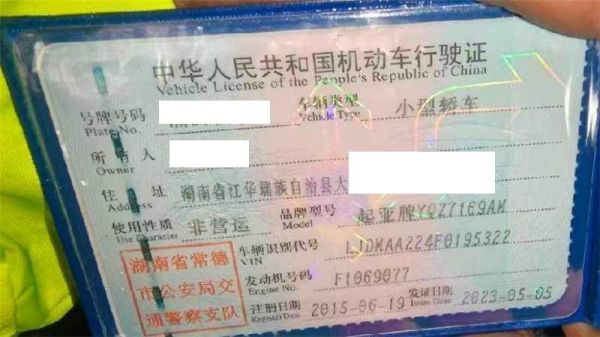 中华人民共和国机动车行驶证
Vehicle License of the People's Republic of China
号牌号码 车辆类型 小型轿车
Plate No. Vehicle Type
所有人
Owner
住址 湖南省江华瑶族自治县大
Address
使用性质 非营运 品牌型号 起亚牌YQZ7169AM
Use Character Model
湖南省常德市公安局交通警察支队
车辆识别代号 LJDMAA224F0195322
VIN
发动机号码 F1069077
Engine No.
注册日期 2015-06-19 发证日期 2023-05-05
Register Date Issue Date